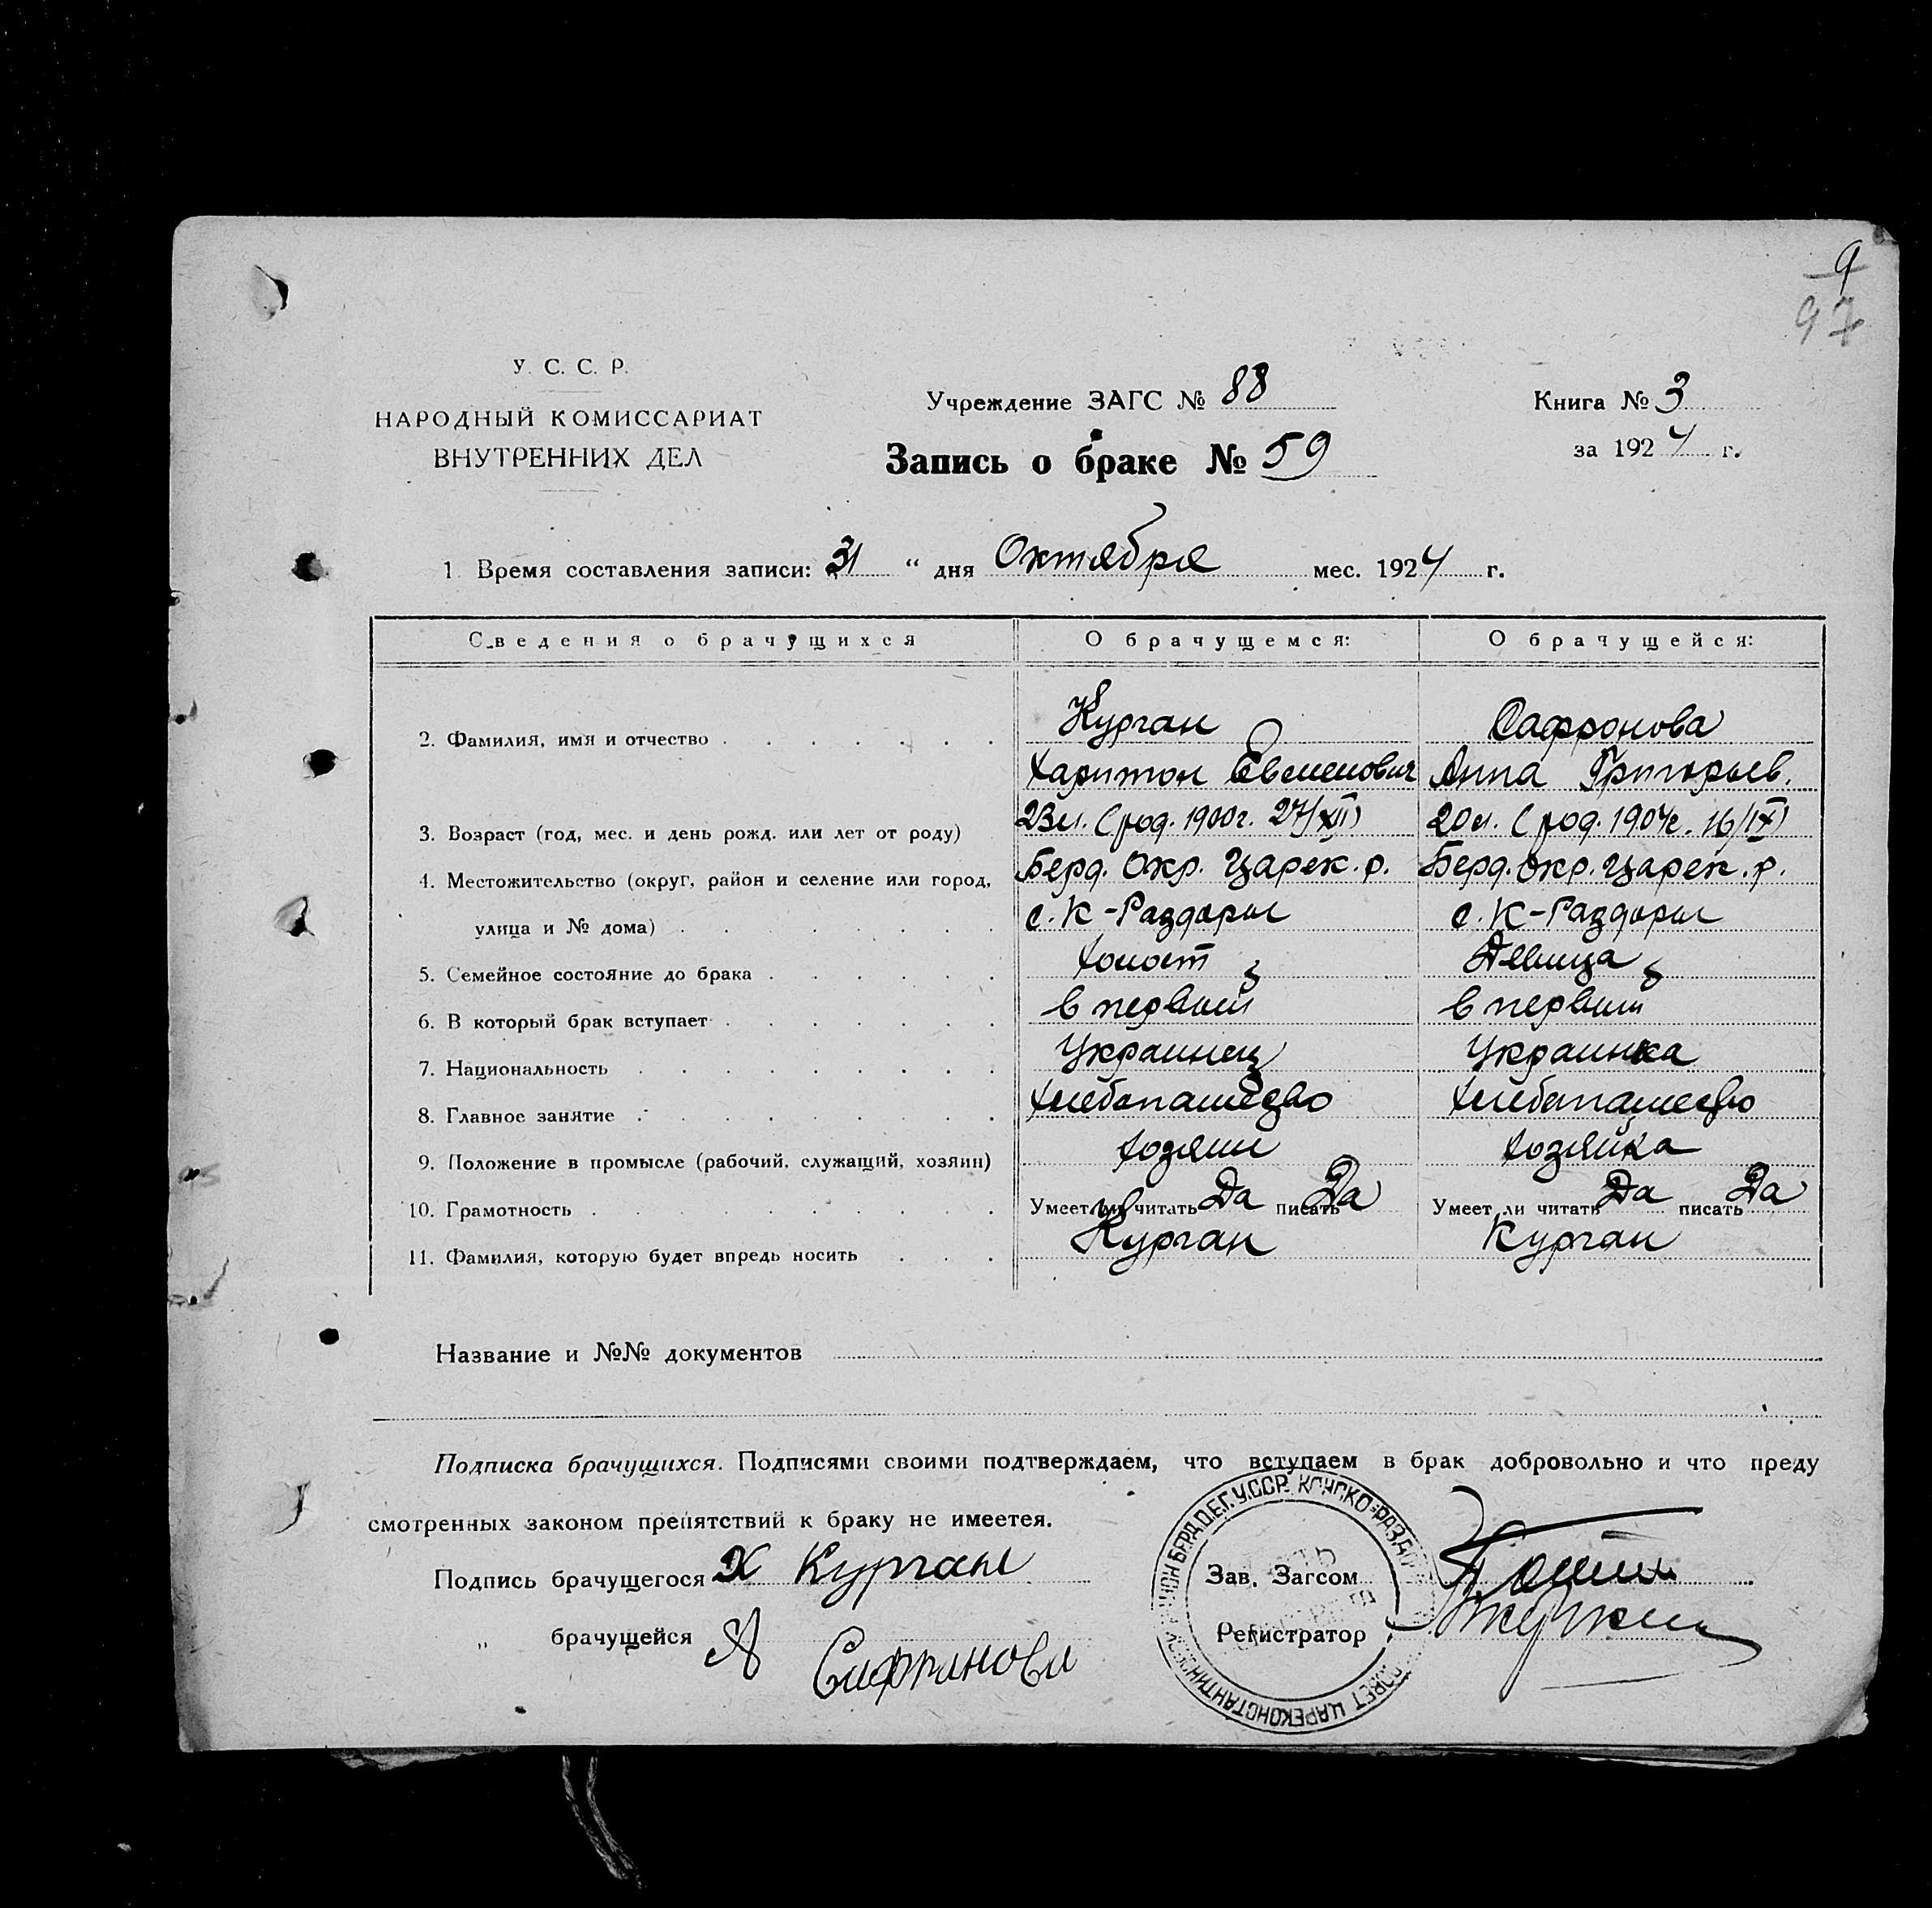 9
97
У. С. С. Р.
НАРОДНЫЙ КОМИССАРИАТ
ВНУТРЕННИХ ДЕЛ
Учреждение ЗАГС № 88
Запись о браке № 59
Книга № 3
за 1924 г.
1. Время составления записи: 31 “ дня Октября мес. 1924 г.
Сведения о брачущихся О брачущемся: О брачущейся:
Курган Сафронова
2. Фамилия, имя и отчество
Харитон Евменович Анна Григорьев.
3. Возраст (год, мес. и день рожд. или лет от роду) 23 л. (род. 1900 г. 27/XII) 20 л. (род. 1904 г. 16/IX)
4. Местожительство (округ, район и селение или город, Берд. Окр. Царек. р. Берд. Окр. Царек. р.
улица и № дома) с. К-Раздоры с. К-Раздоры
5. Семейное состояние до брака Холост Девица
6. В который брак вступает в первый в первый
7. Национальность Украинец Украинка
8. Главное занятие Хлебопашество Хлебопашество
9. Положение в промысле (рабочий, служащий, хозяин) Хозяин Хозяйка
10. Грамотность Умеет ли читать Да писать Да Умеет ли читать Да писать Да
11. Фамилия, которую будет впредь носить Курган Курган
Название и №№ документов
Подписка брачущихся. Подписями своими подтверждаем, что вступаем в брак добровольно и что преду
смотренных законом препятствий к браку не имеетея.
Подпись брачущегося Х Курган
„ брачущейся А Сафранова
Зав. Загсом
Регистратор
БЕРД. О. Е.Г. У.ССР. КОНСКО-РАЗДО
СОВЕТ ЦАРЕКОНСТАНТИНОВСК